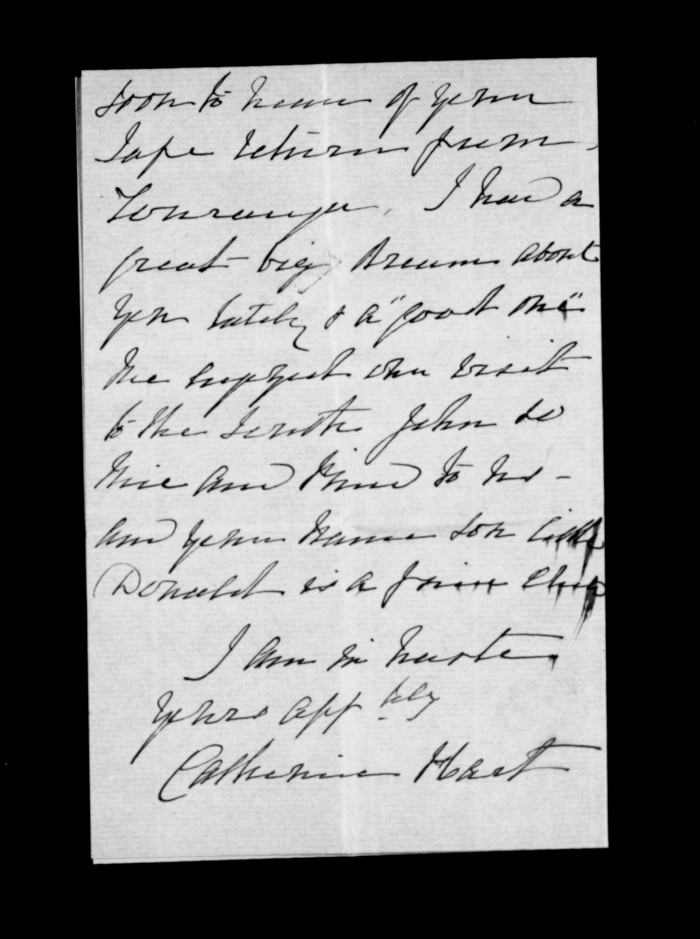 soon to hear of your
safe return from
Touranga. I had a
great big dream about
you lately & a "good one"
We enjoyed our visit
to the South John so
nice and kind to us -
and your name son little
Donald is a fine chap
I am in haste
yours aff tely
Catherine Hart